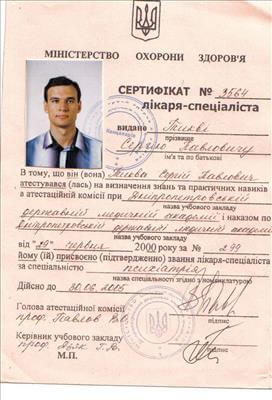 МІНІСТЕРСТВО ОХОРОНИ ЗДОРОВ'Я
СЕРТИФІКАТ № 3564
лікаря-спеціаліста
видано
прізвище
Сергію Павловичу
ім'я та по батькові
В тому, що він (вона) Сергій Павлович
атестувався (лась) на визначення знань та практичних навиків
в атестаційній комісії при Дніпропетровській
державній медичній академії і наказом по
назва учбового закладу
Дніпропетровській державній медичній академії
назва учбового закладу
від "29" червня 2000 року за № 299
йому (їй) присвоєно (підтверджено) звання лікаря-спеціаліста
за спеціальністю психіатрія
назва спеціальності згідно з номенклатурою
Дійсно до 30.06.2005
Голова атестаційної комісії
проф. Павлов В.О.
підпис
Керівник учбового закладу
проф. Г.В.
підпис
М.П.